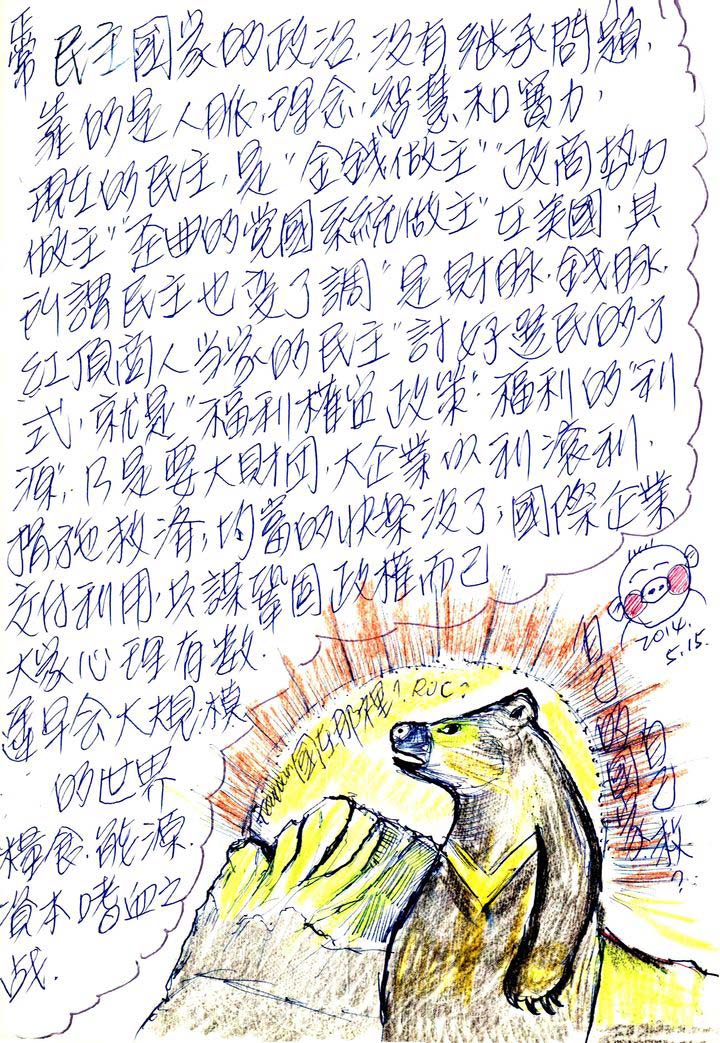 正常民主國家的政治.沒有繼承問題,
靠的是人脈,理念,智慧和實力,
現在的民主,是"金錢做主""政商势力
做主""歪曲的党國系統做主"在美國,其
所謂民主也变了調"是財脉.錢脉.
紅頂商人当家的民主"討好選民的方
式,就是"福利權宜政策"福利的"利
源",只是要大財团,大企業以利滾利,
措施救济,均富的快樂沒了;國際企業
交付利用,共謀鞏固政權而已
大家心理有数.
遲早会大規模
的世界
糧食.能源.
資本嗜血之
战.
2014.
5.15.
國在那裡?ROC?
自己的國家
自己救?